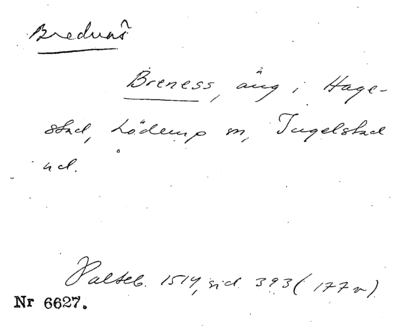 Brednäs
Breness, äng i Hage-
stad, Löderup sn, Ingelstad
hd.
Palteb. 1514, sid. 393 (177 v).
Nr 6627.